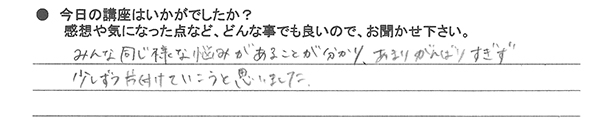 ● 今日の講座はいかがでしたか？
感想や気になった点など、どんな事でも良いので、お聞かせ下さい。
みんな同じ様な悩みがあることが分かり、あまりがんばりすぎず
少しずつ片付けていこうと思いました。